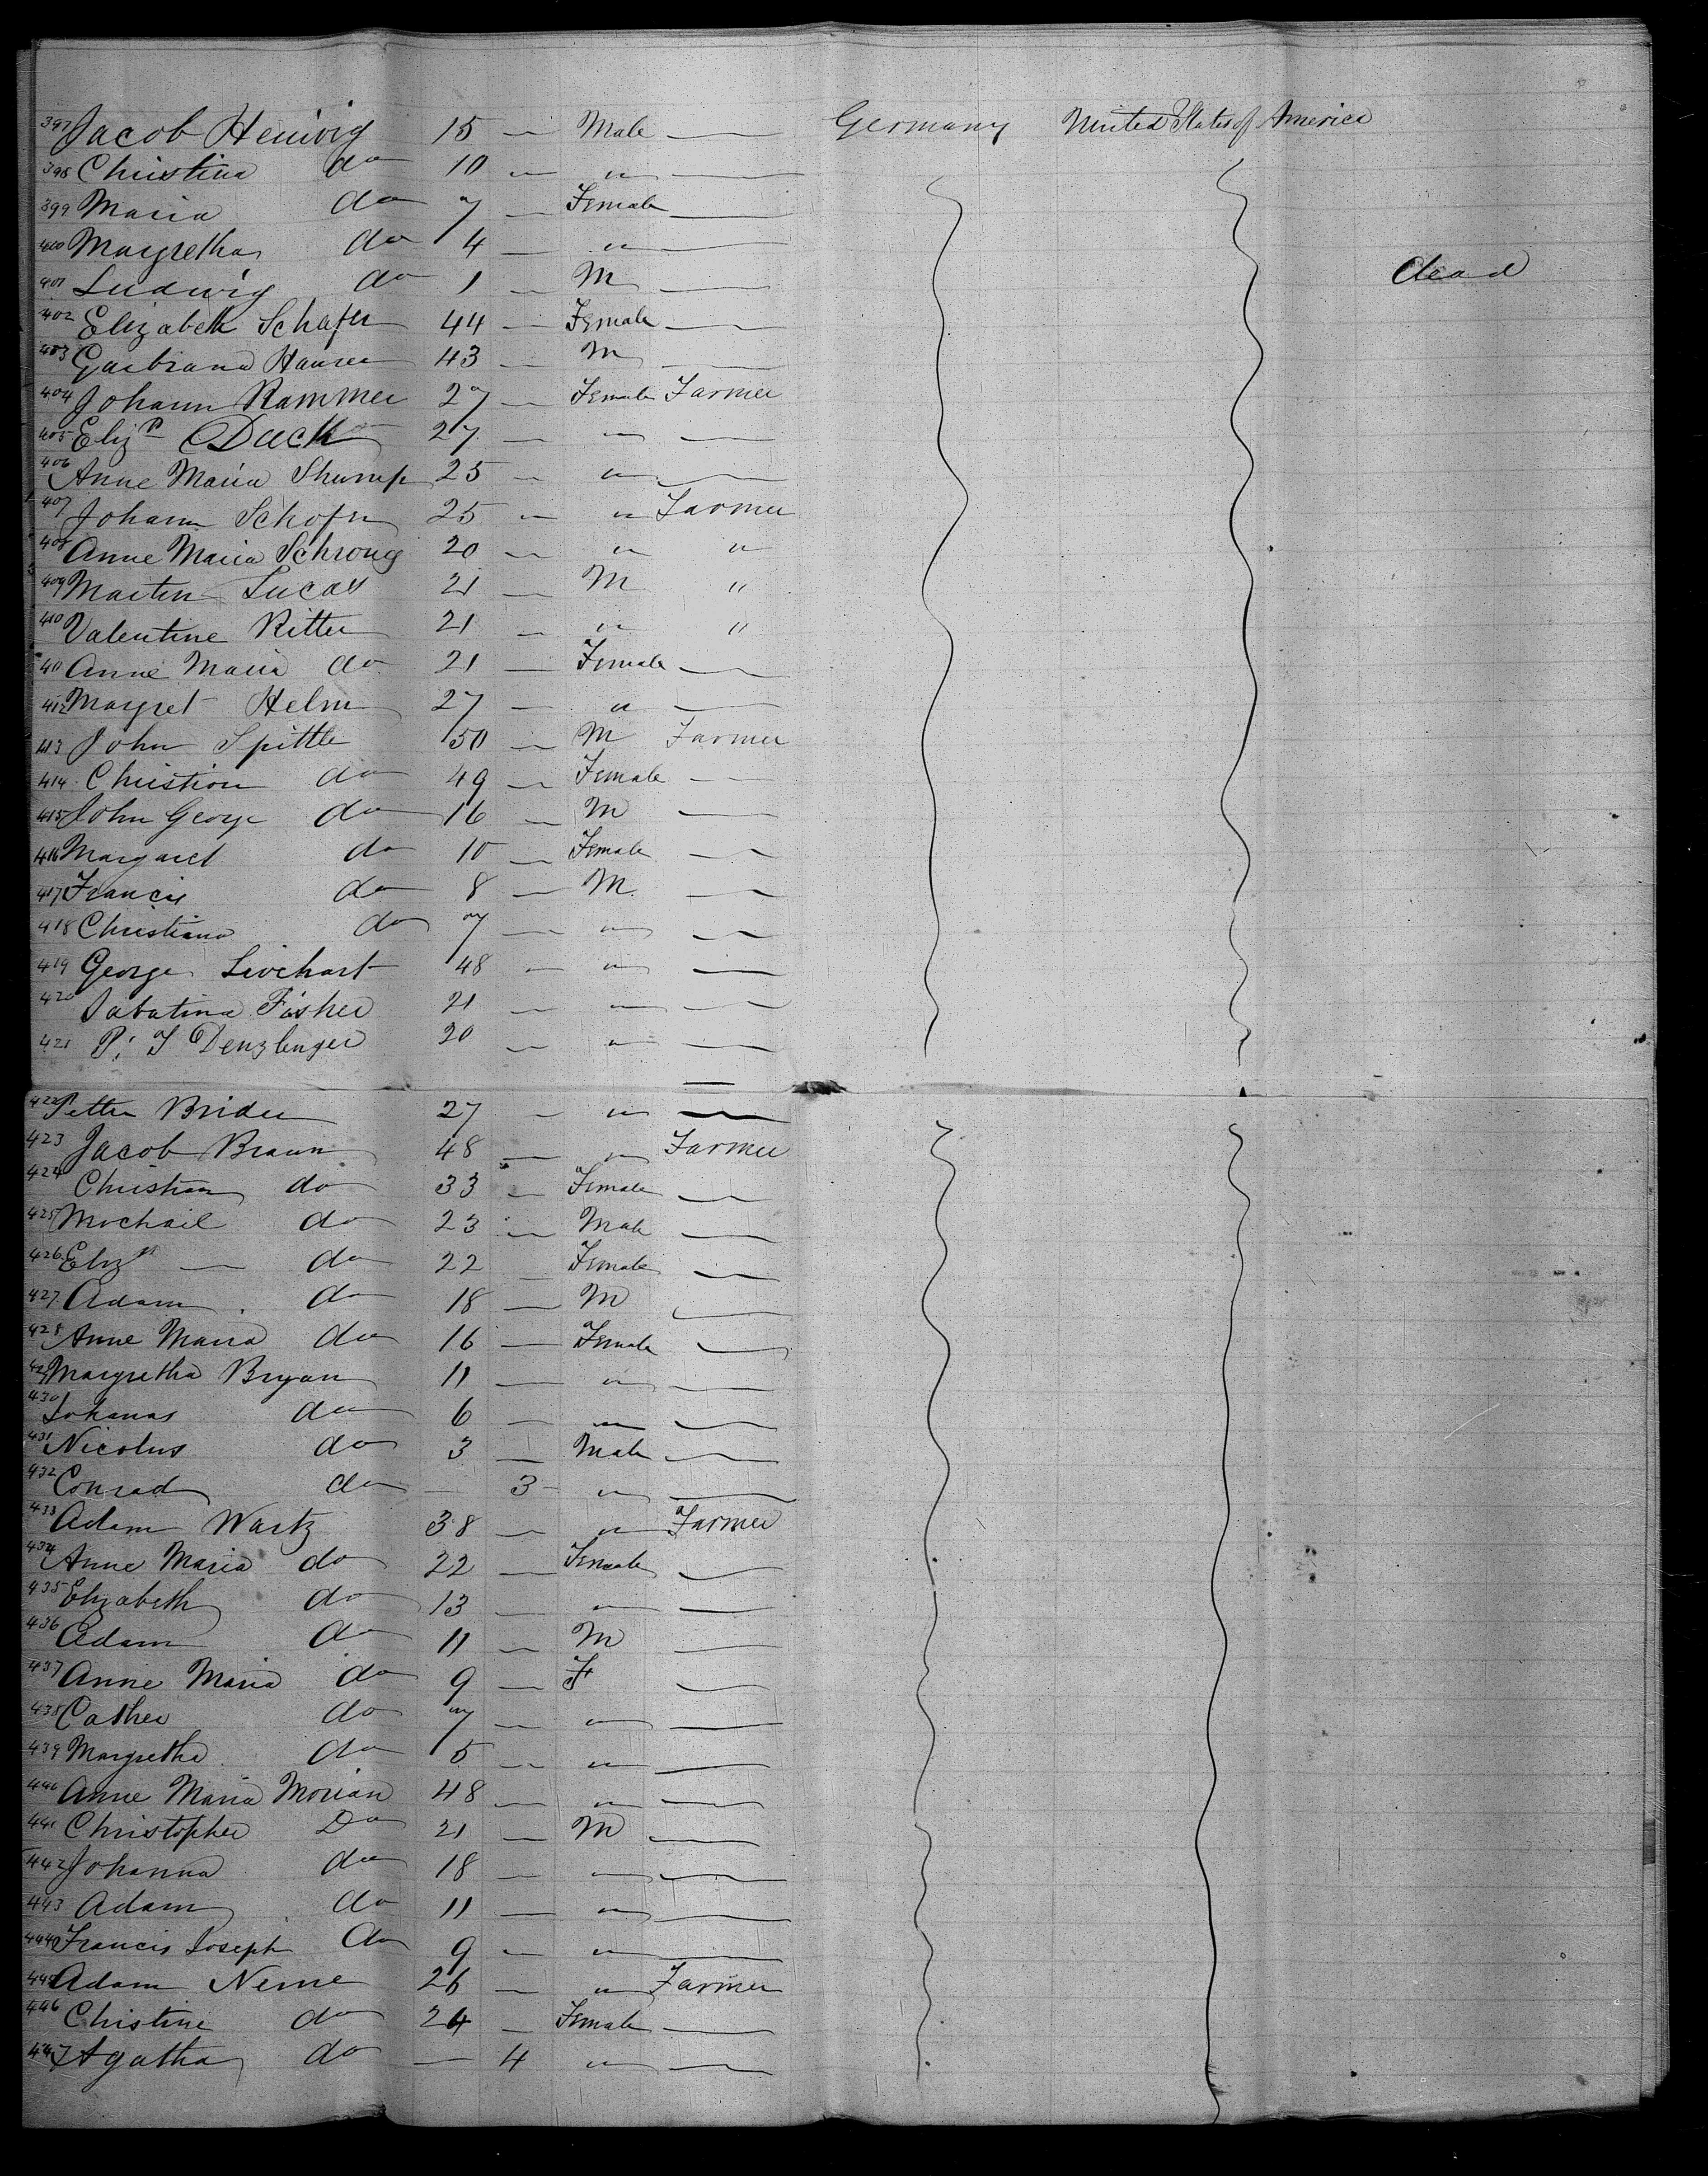 397 Jacob Hennig 15 — Male — Germany United States of America
398 Christina do 10 — " —
399 Maria do 7 — Female —
400 Margretha do 4 — " —
401 Ludwig do 1 — M — dead
402 Elizabeth Schafer 44 — Female —
403 Hausen 43 — M —
404 Johann Rammer 27 — Female Farmer
405 Eliz Duck 27 — " —
406 Anne Maria Shump 25 — " —
407 Johann Schofer 25 — " Farmer
408 Anne Maria Schrong 20 — " "
409 Martin Lucas 21 — M "
410 Valentine Ritter 21 — " "
411 Anne Maria do 21 — Female —
412 Margret Helm 27 — " —
413 John Spittle 50 — M Farmer
414 Christion do 49 — Female —
415 John George do 16 — M —
416 Margaret do 10 — Female —
417 Francis do 8 — M —
418 Christiana do 7 — " —
419 George Livehart 48 — " —
420 Sabatina Fisher 21 — " —
421 P. J Denzlinger 20 — " —
422 Petter Brider 27 — " —
423 Jacob Braun 48 — " Farmer
424 Christian do 33 — Female —
425 Mochail do 23 — Male —
426 Eliz — do 22 Female —
427 Adam do 18 — M —
428 Anne Maria do 16 — Female —
429 Margretha Bryan 11 — " —
430 Johanas do 6 — " —
431 Nicolus do 3 — Male —
432 Conrad do — 3 " —
433 Adam Wartz 38 — " Farmer
434 Anne Maria do 22 — Female —
435 Elizabeth do 13 — " —
436 Adam do 11 — M —
437 Anne Maria do 9 — F —
438 Cather do 7 — " —
439 Margretha do 5 — " —
440 Anne Maria Morian 48 — " —
441 Christopher Do 21 — M —
442 Johanna do 18 — " —
443 Adam do 11 — " —
444 Francis Joseph do 9 — " —
445 Adam Neme 26 — " Farmer
446 Christine do 24 — Female —
447 Agatha do — 4 " —